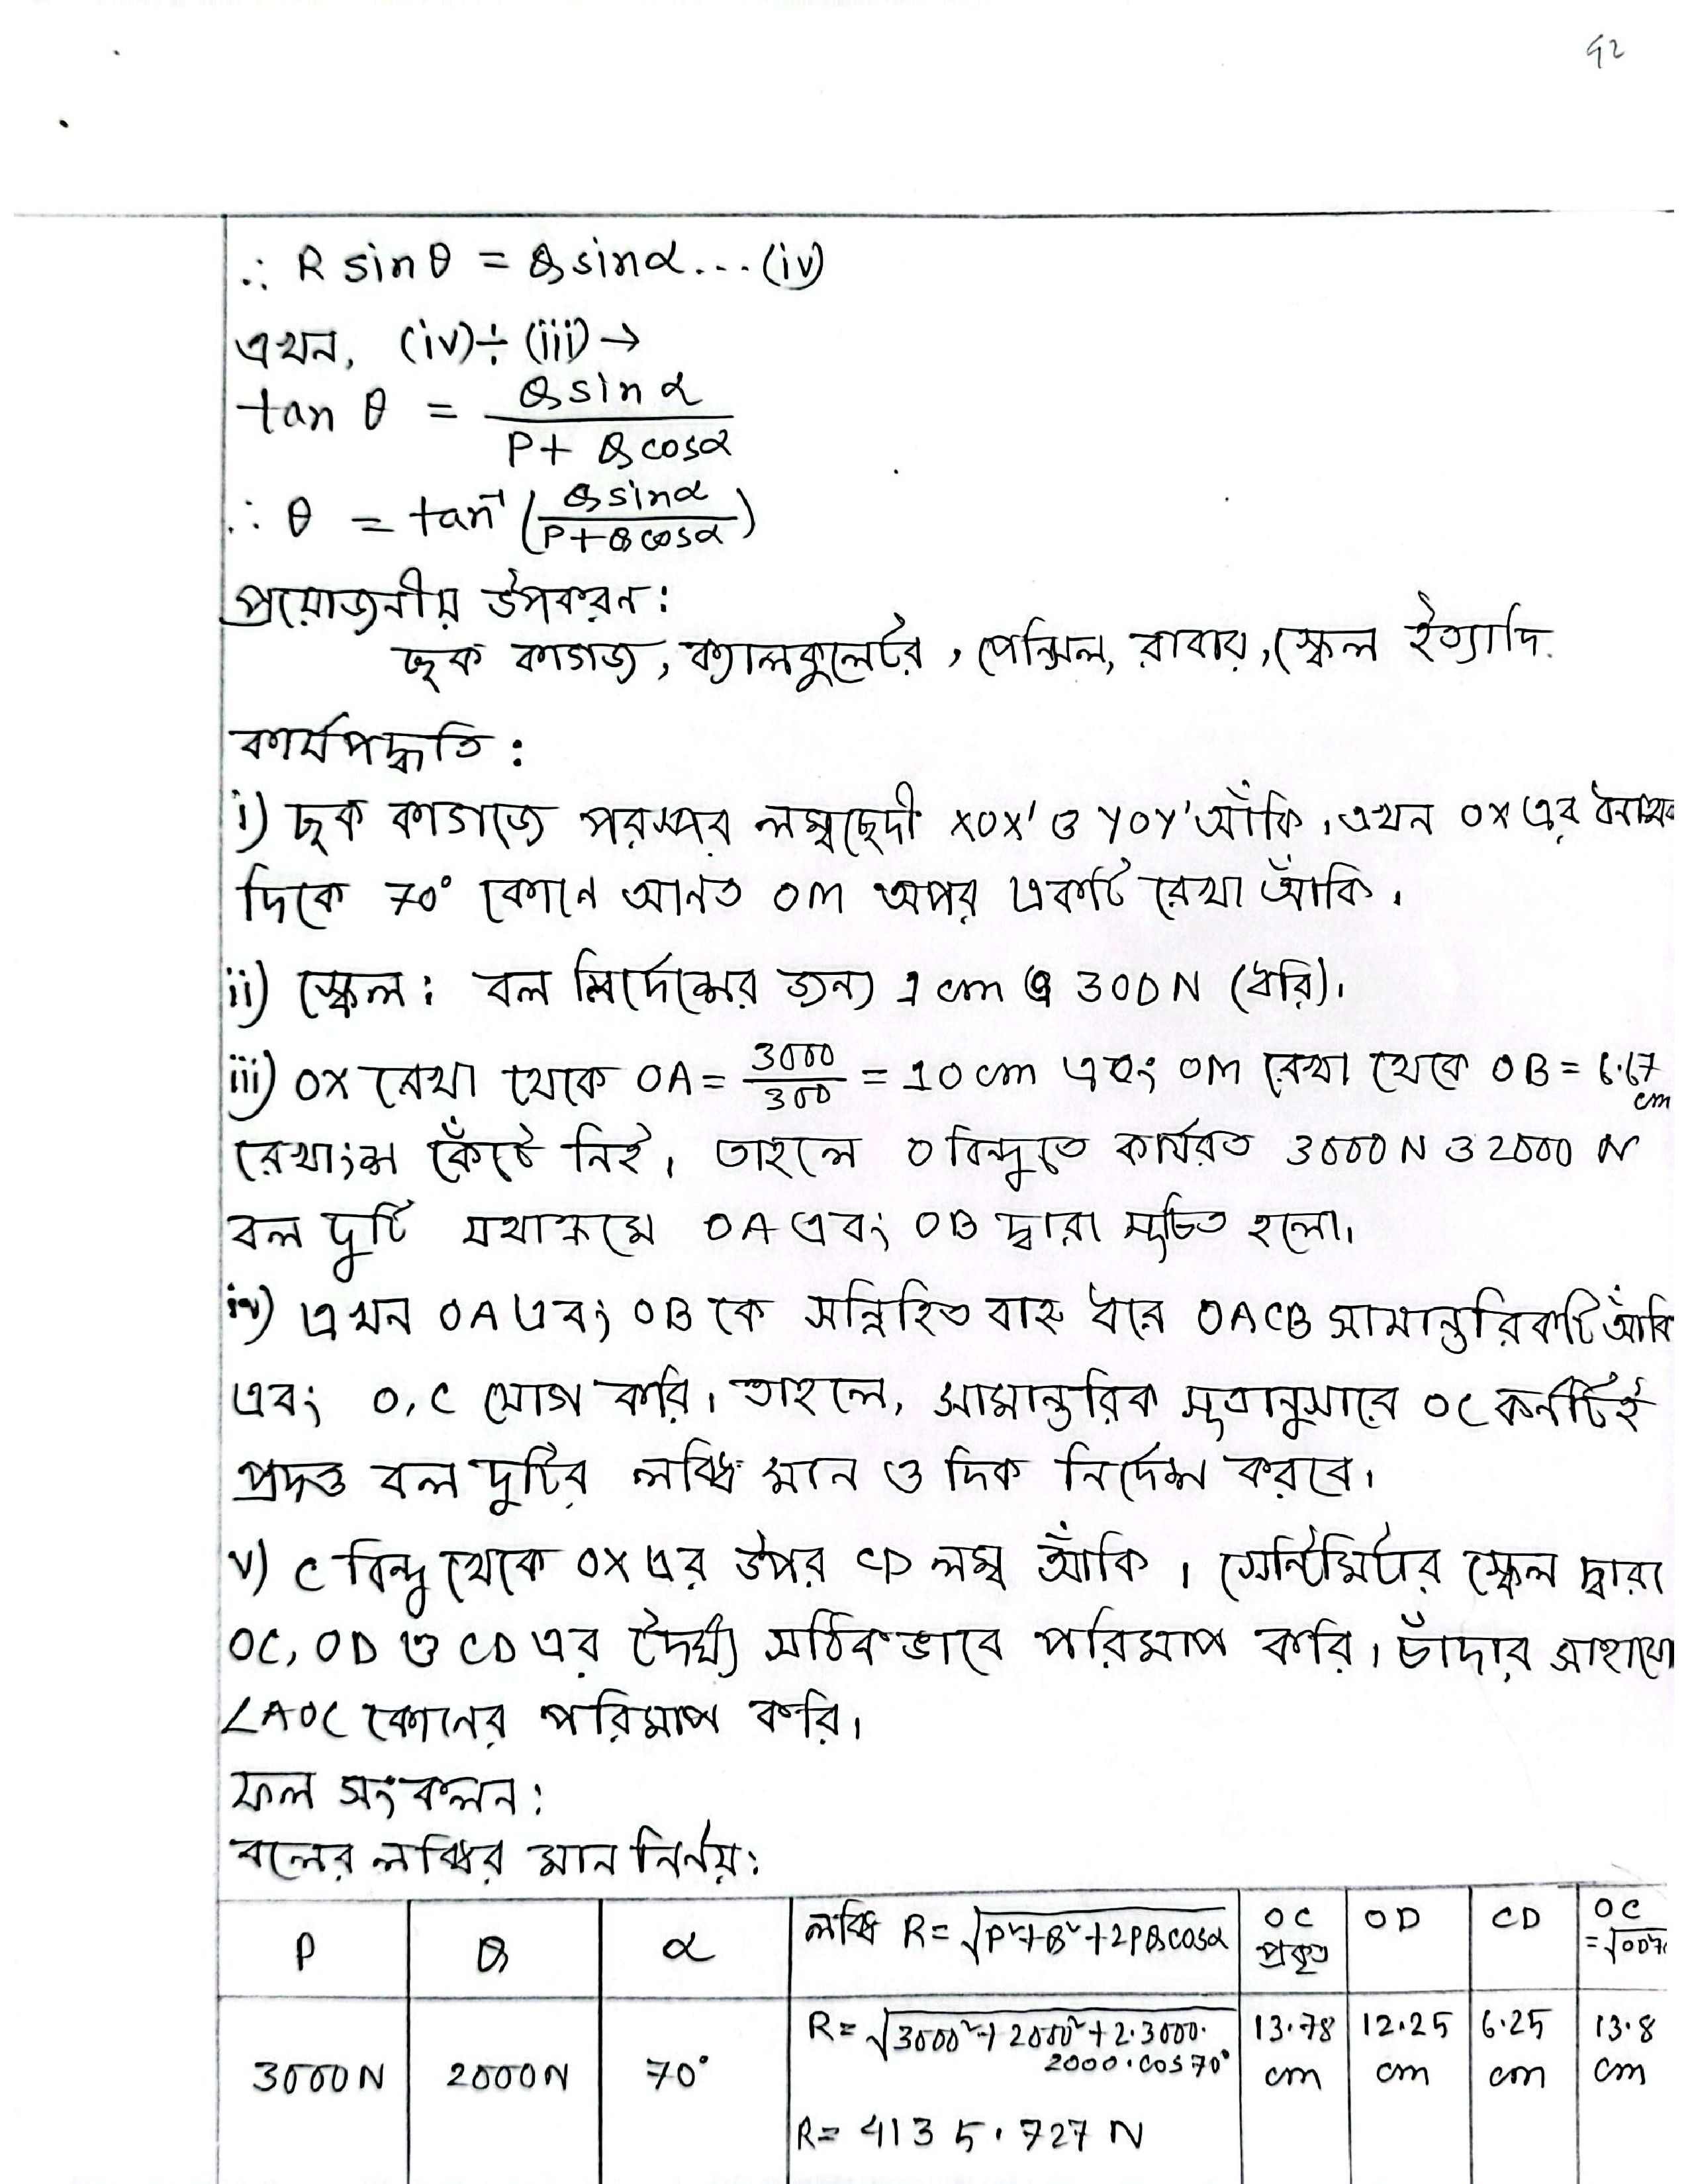 42
∴ R sinθ = Q sinα... (iv)
এখন, (iv)÷ (iii) →
tan θ = Q sin α / P + Q cosα
∴ θ = tan⁻¹ (Q sinα / P+Q cosα)
প্রয়োজনীয় উপকরন :
ছক কাগজ, ক্যালকুলেটর, পেন্সিল, রাবার, স্কেল ইত্যাদি.
কার্যপদ্ধতি :
i) ছক কাগজে পরস্পর লম্বছেদী XOX' ও YOY' আঁকি। এখন OX এর ধনাত্মক
দিকে 70° কোনে আনত OM অপর একটি রেখা আঁকি।
ii) স্কেল : বল নির্দেশের জন্য 1 cm @ 300N (ধরি)।
iii) OX রেখা থেকে OA = 3000/300 = 10 cm এবং OM রেখা থেকে OB = 6.67 cm
রেখাংশ কেঁটে নিই। তাহলে O বিন্দুতে কার্যরত 3000 N ও 2000 N
বল দুটি যথাক্রমে OA এবং OB দ্বারা সূচিত হলো।
iv) এখন OA এবং OB কে সন্নিহিত বাহু ধরে OACB সামান্তরিকটি আঁকি
এবং O, C যোগ করি। তাহলে, সামান্তরিক সূত্রানুসারে OC কর্নটিই
প্রদত্ত বল দুটির লব্ধি মান ও দিক নির্দেশ করবে।
v) C বিন্দু থেকে OX এর উপর CD লম্ব আঁকি। সেন্টিমিটার স্কেল দ্বারা
OC, OD ও CD এর দৈর্ঘ্য সঠিকভাবে পরিমাপ করি। চাঁদার সাহায্যে
∠AOC কোনের পরিমাপ করি।
ফল সংকলন :
বলের লব্ধির মান নির্নয় :
P Q α লব্ধি R = √P²+Q²+2PQ cosα OC প্রকৃত OD CD OC = √OD²+
3000 N 2000 N 70° R = √3000²+2000²+2.3000. 2000.cos 70° 13.78 cm 12.25 cm 6.25 cm 13.8 cm
R = 4135.727 N